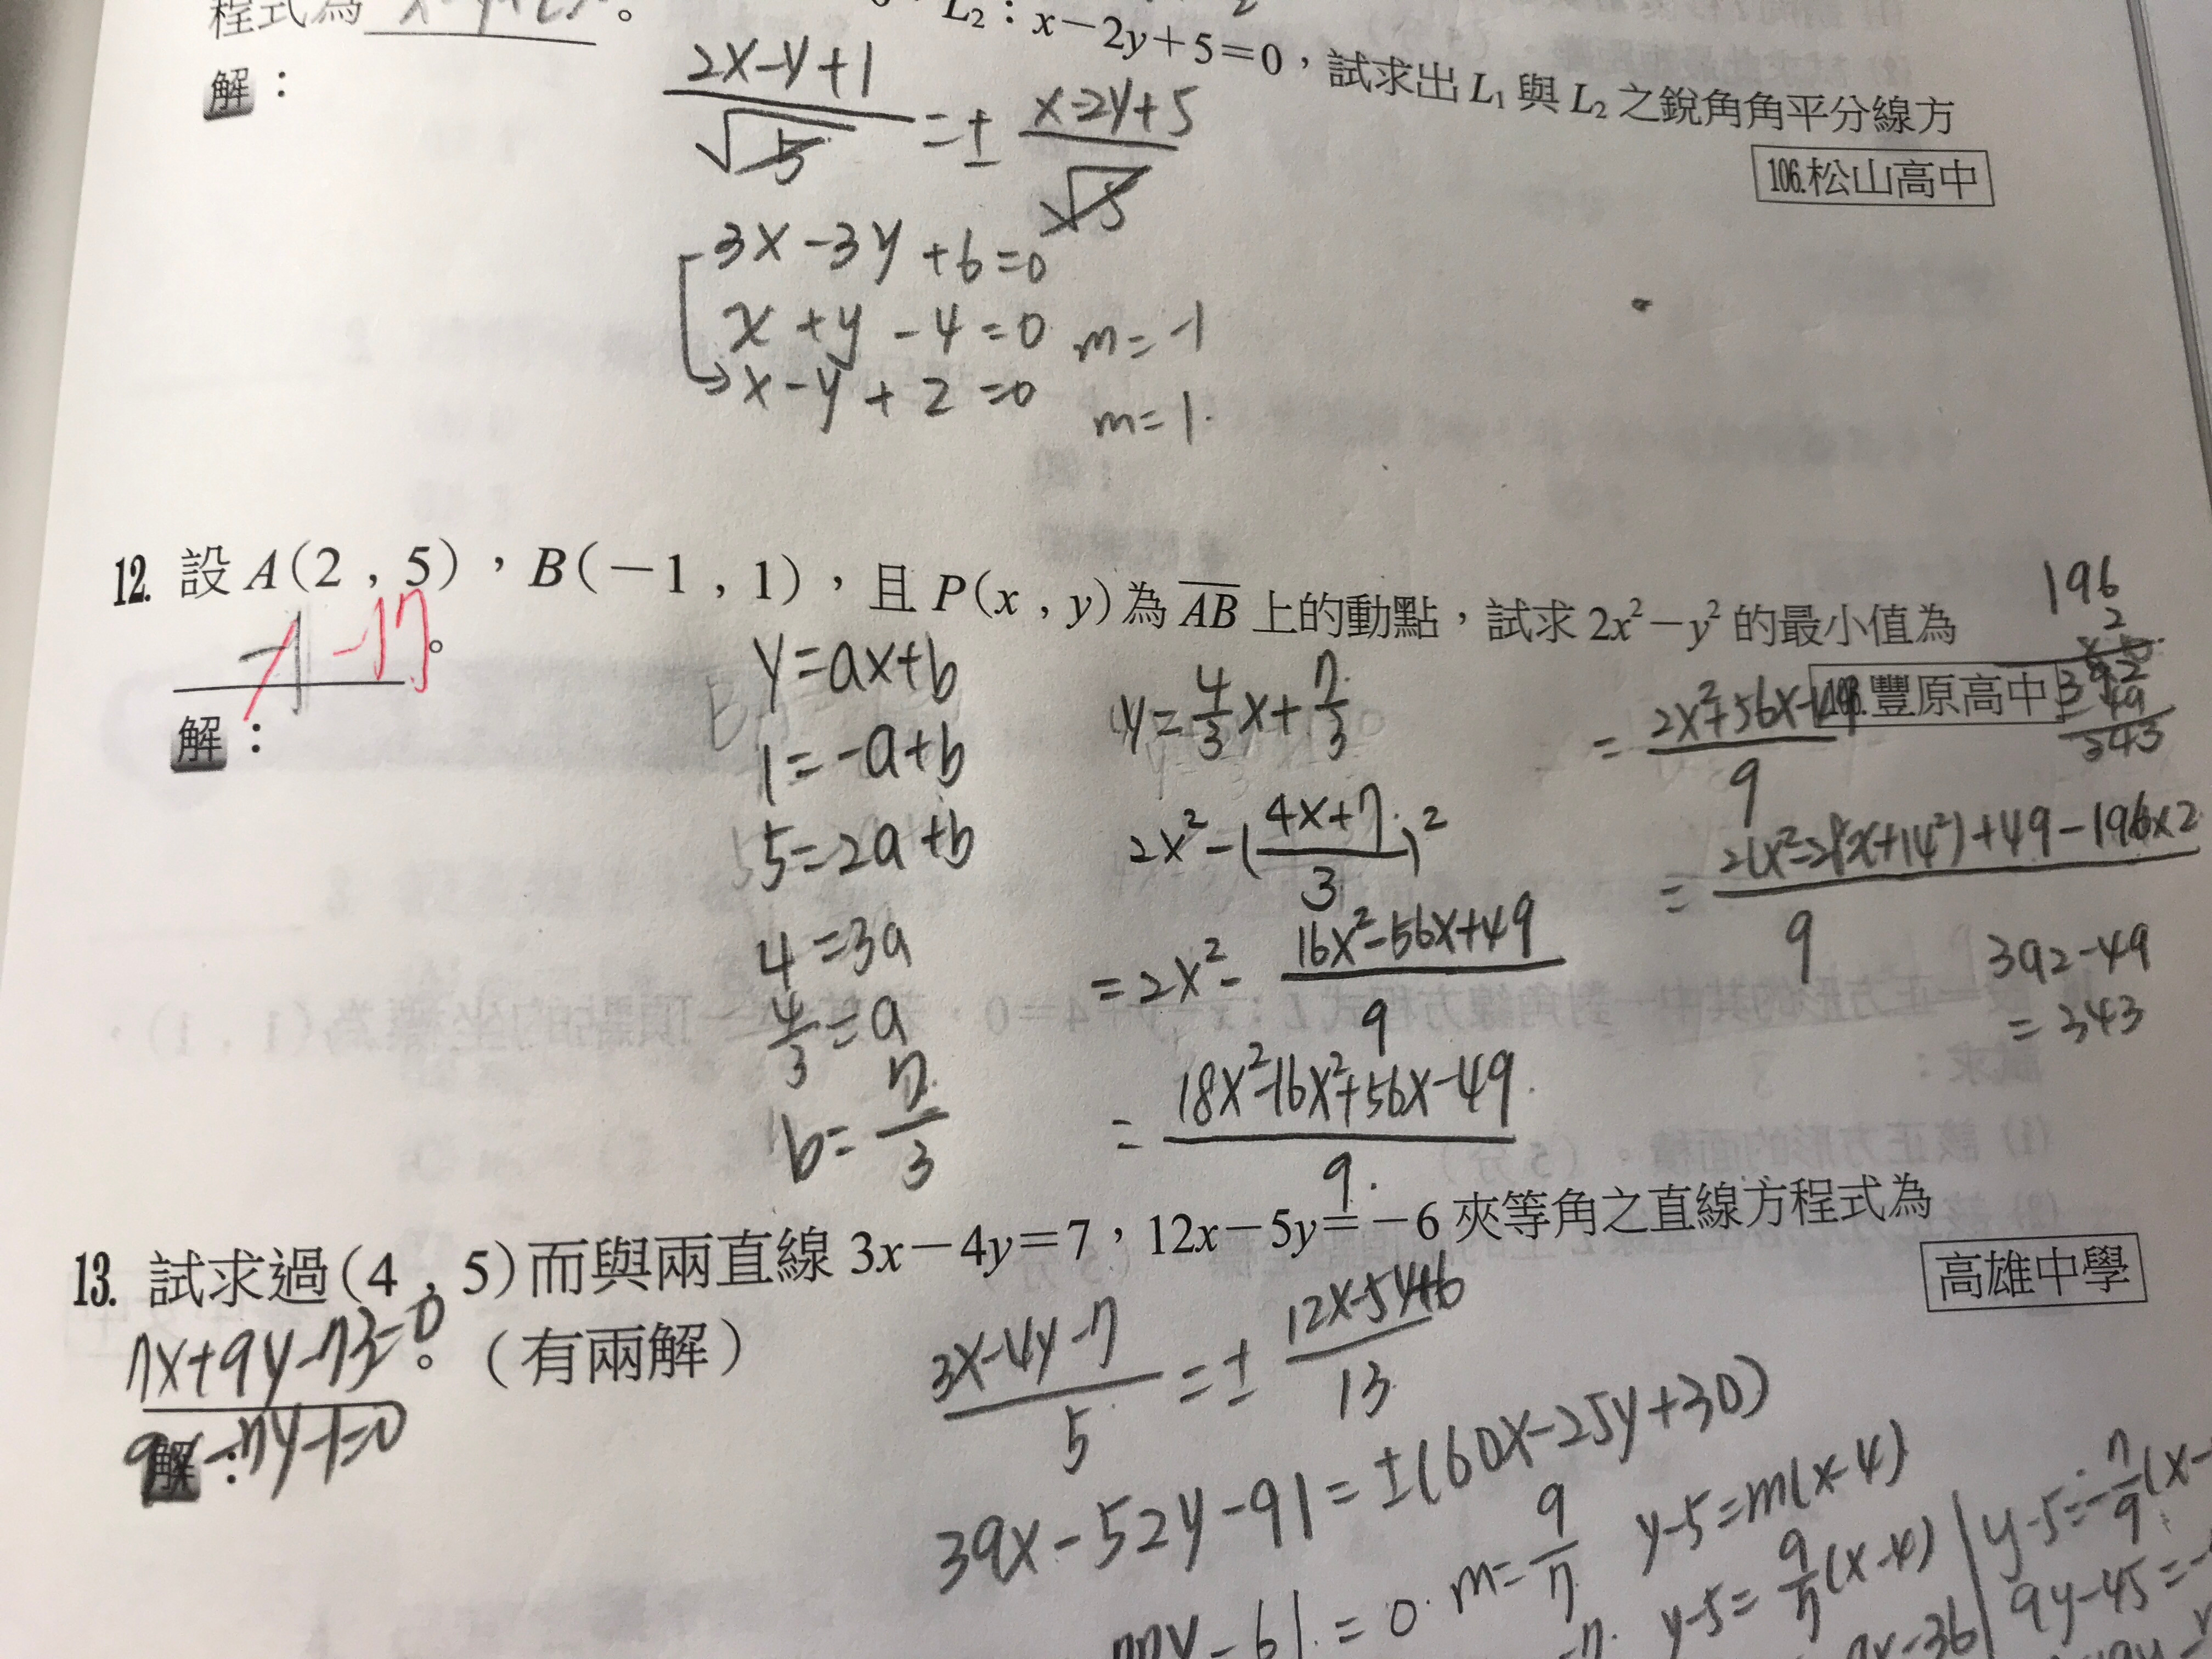 程式為
L₂：x－2y＋5＝0，試求出 L₁ 與 L₂ 之銳角角平分線方
106.松山高中
解：
2x-y+1
√5
=±
x-2y+5
√5
3x-3y+6=0
x+y-4=0 m=-1
x-y+2=0 m=1
12. 設 A(2 , 5)，B(－1 , 1)，且 P(x , y)為 AB 上的動點，試求 2x²－y² 的最小值為
-17。
豐原高中
解：
y=ax+b
1=-a+b
5=2a+b
4=3a
4/3=a
b=7/3
y=4/3x+7/3
2x²-(4x+7/3)²
=2x²-16x²-56x+49/9
=18x²-16x²+56x-49/9
=2x²+56x-49/9
=2(x²-28x+14²)+49-196x2/9
196
2
392
49
343
392-49
=343
13. 試求過(4 , 5)而與兩直線 3x－4y＝7，12x－5y＝－6 夾等角之直線方程式為
高雄中學
7x+9y-73=0
。（有兩解）
9x-7y-1=0
解：
3x-4y-7/5=±12x-5y+6/13
39x-52y-91=±(60x-25y+30)
y-61=0 m=9/7
y-5=m(x-4)
y-5=9/7(x-4)
y-5=-7/9(x-
9y-45=-
x-36